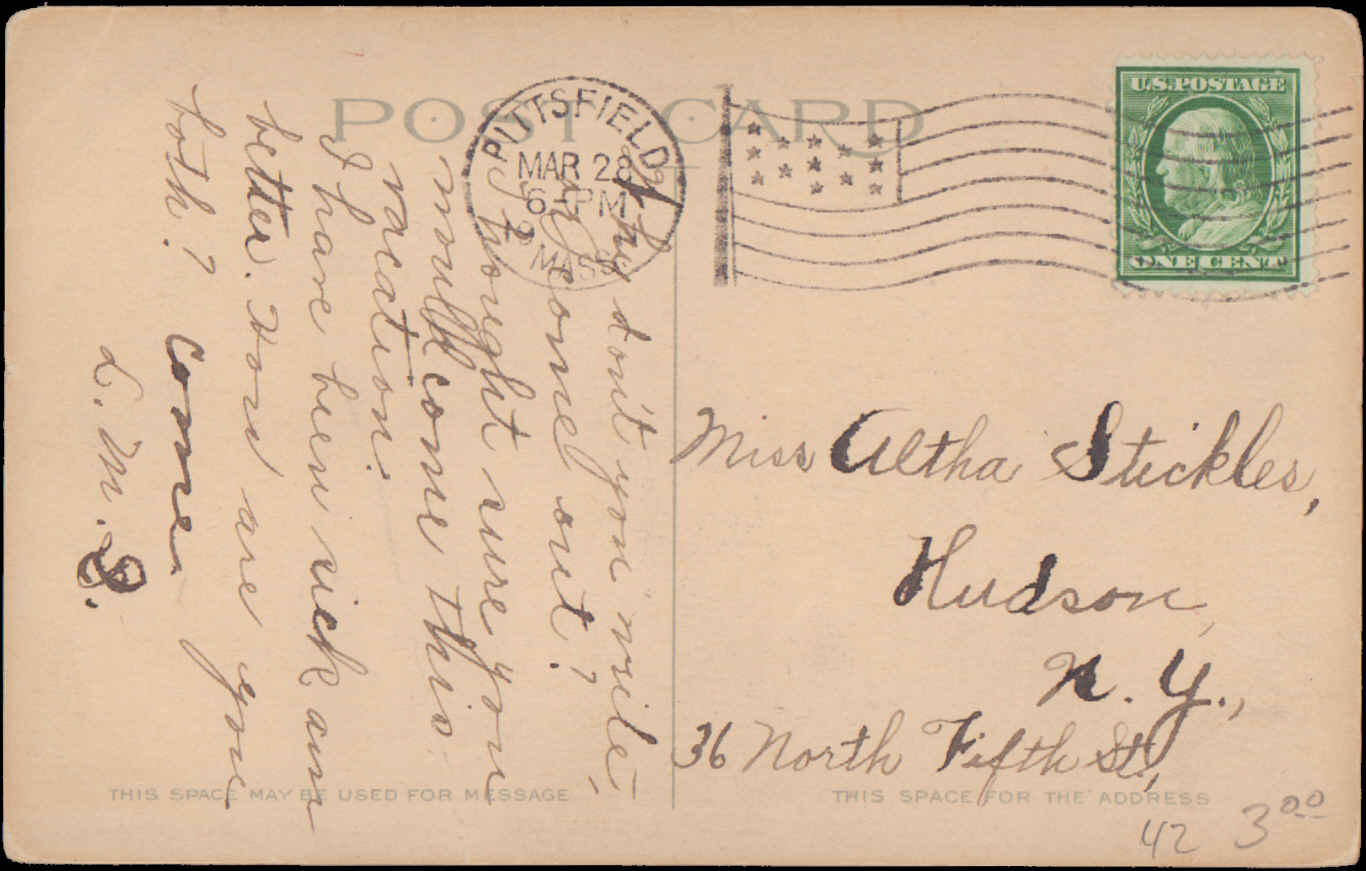 POST CARD
PITTSFIELD
MAR 28
6-PM
MASS.
U.S. POSTAGE
ONE CENT
Why don't you write,
come out?
I thought sure you
would come this
vacation.
I have been sick am
better. How are you
both? Come.
L. M. S.
Miss Altha Stickles,
Hudson,
N. Y.,
36 North Fifth St.,
THIS SPACE MAY BE USED FOR MESSAGE
THIS SPACE FOR THE ADDRESS
42 3.00